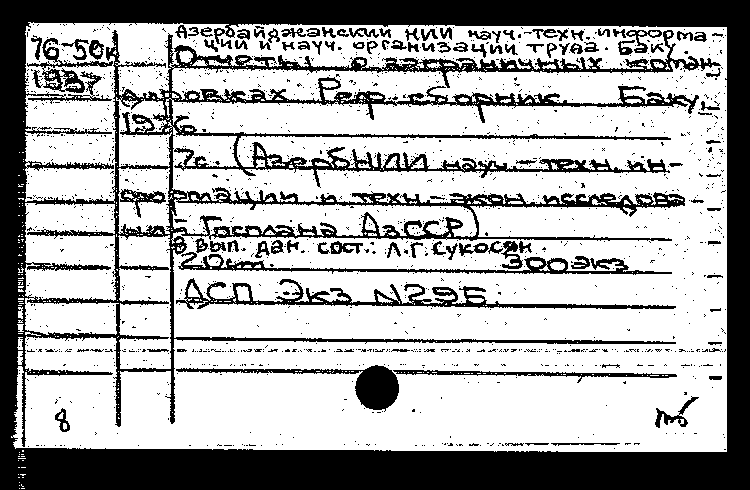 Азербайджанский НИИ науч.-техн. информа-
ции и науч. организации труда. Баку.
76-50к
Отчеты о заграничных коман-
1937
дировках Реф. сборник. Баку,
1976.
7с. (АзербНИИ науч.-техн. ин-
формации и техн.-экон исследова-
ний Госплана АзССР).
В вып. дан. сост.: Л.Г. Сукосян.
20см. 300экз
ДСП Экз N295.
8